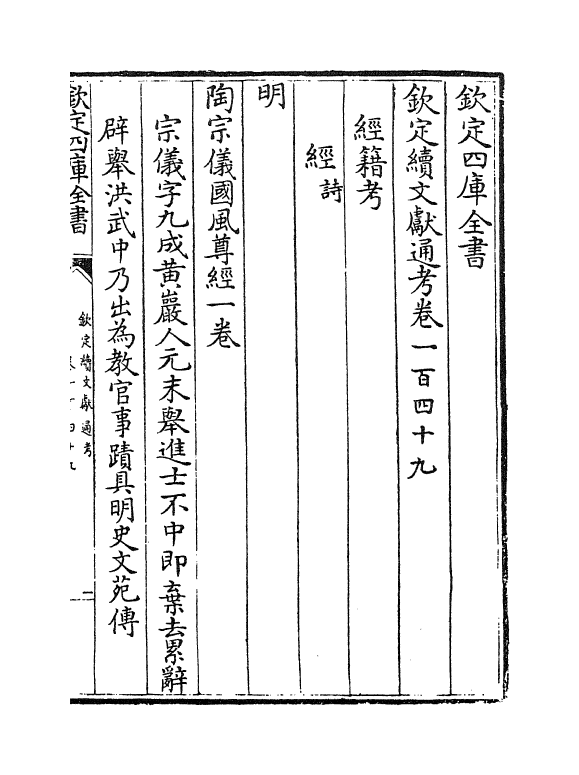 欽定四庫全書
欽定續文獻通考卷一百四十九
經籍考
經 詩
明
陶宗儀國風尊經一卷
宗儀字九成黄巖人元末舉進士不中即棄去累辭
辟舉洪武中乃出為教官事蹟具明史文苑傳
欽定四庫全書
欽定續文獻通考
卷一百四十九